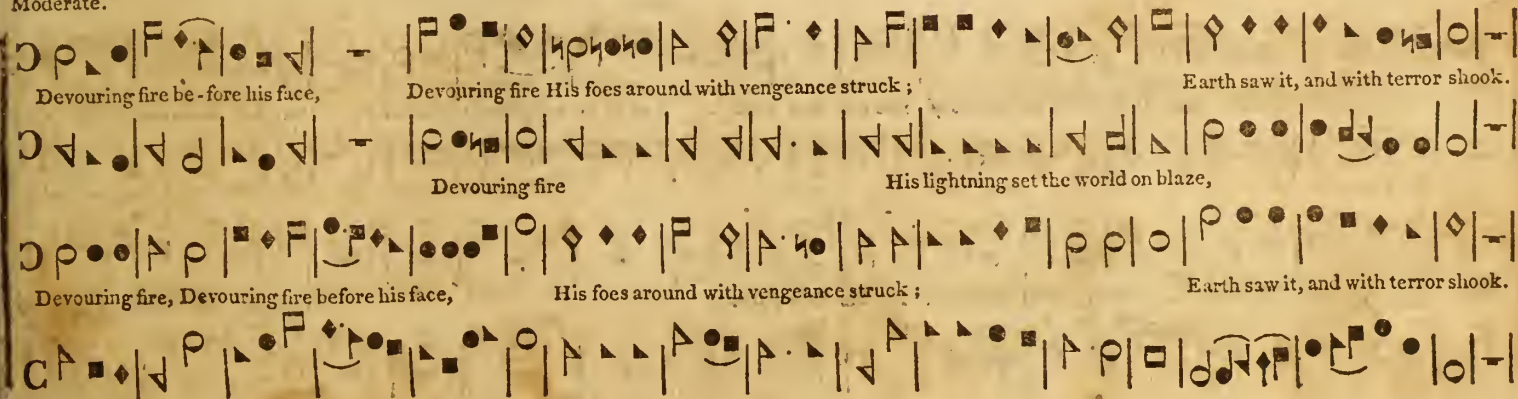 Moderate.
Devouring fire be-fore his face, Devouring fire His foes around with vengeance struck; Earth saw it, and with terror shook.
Devouring fire His lightning set the world on blaze,
Devouring fire, Devouring fire before his face, His foes around with vengeance struck; Earth saw it, and with terror shook.